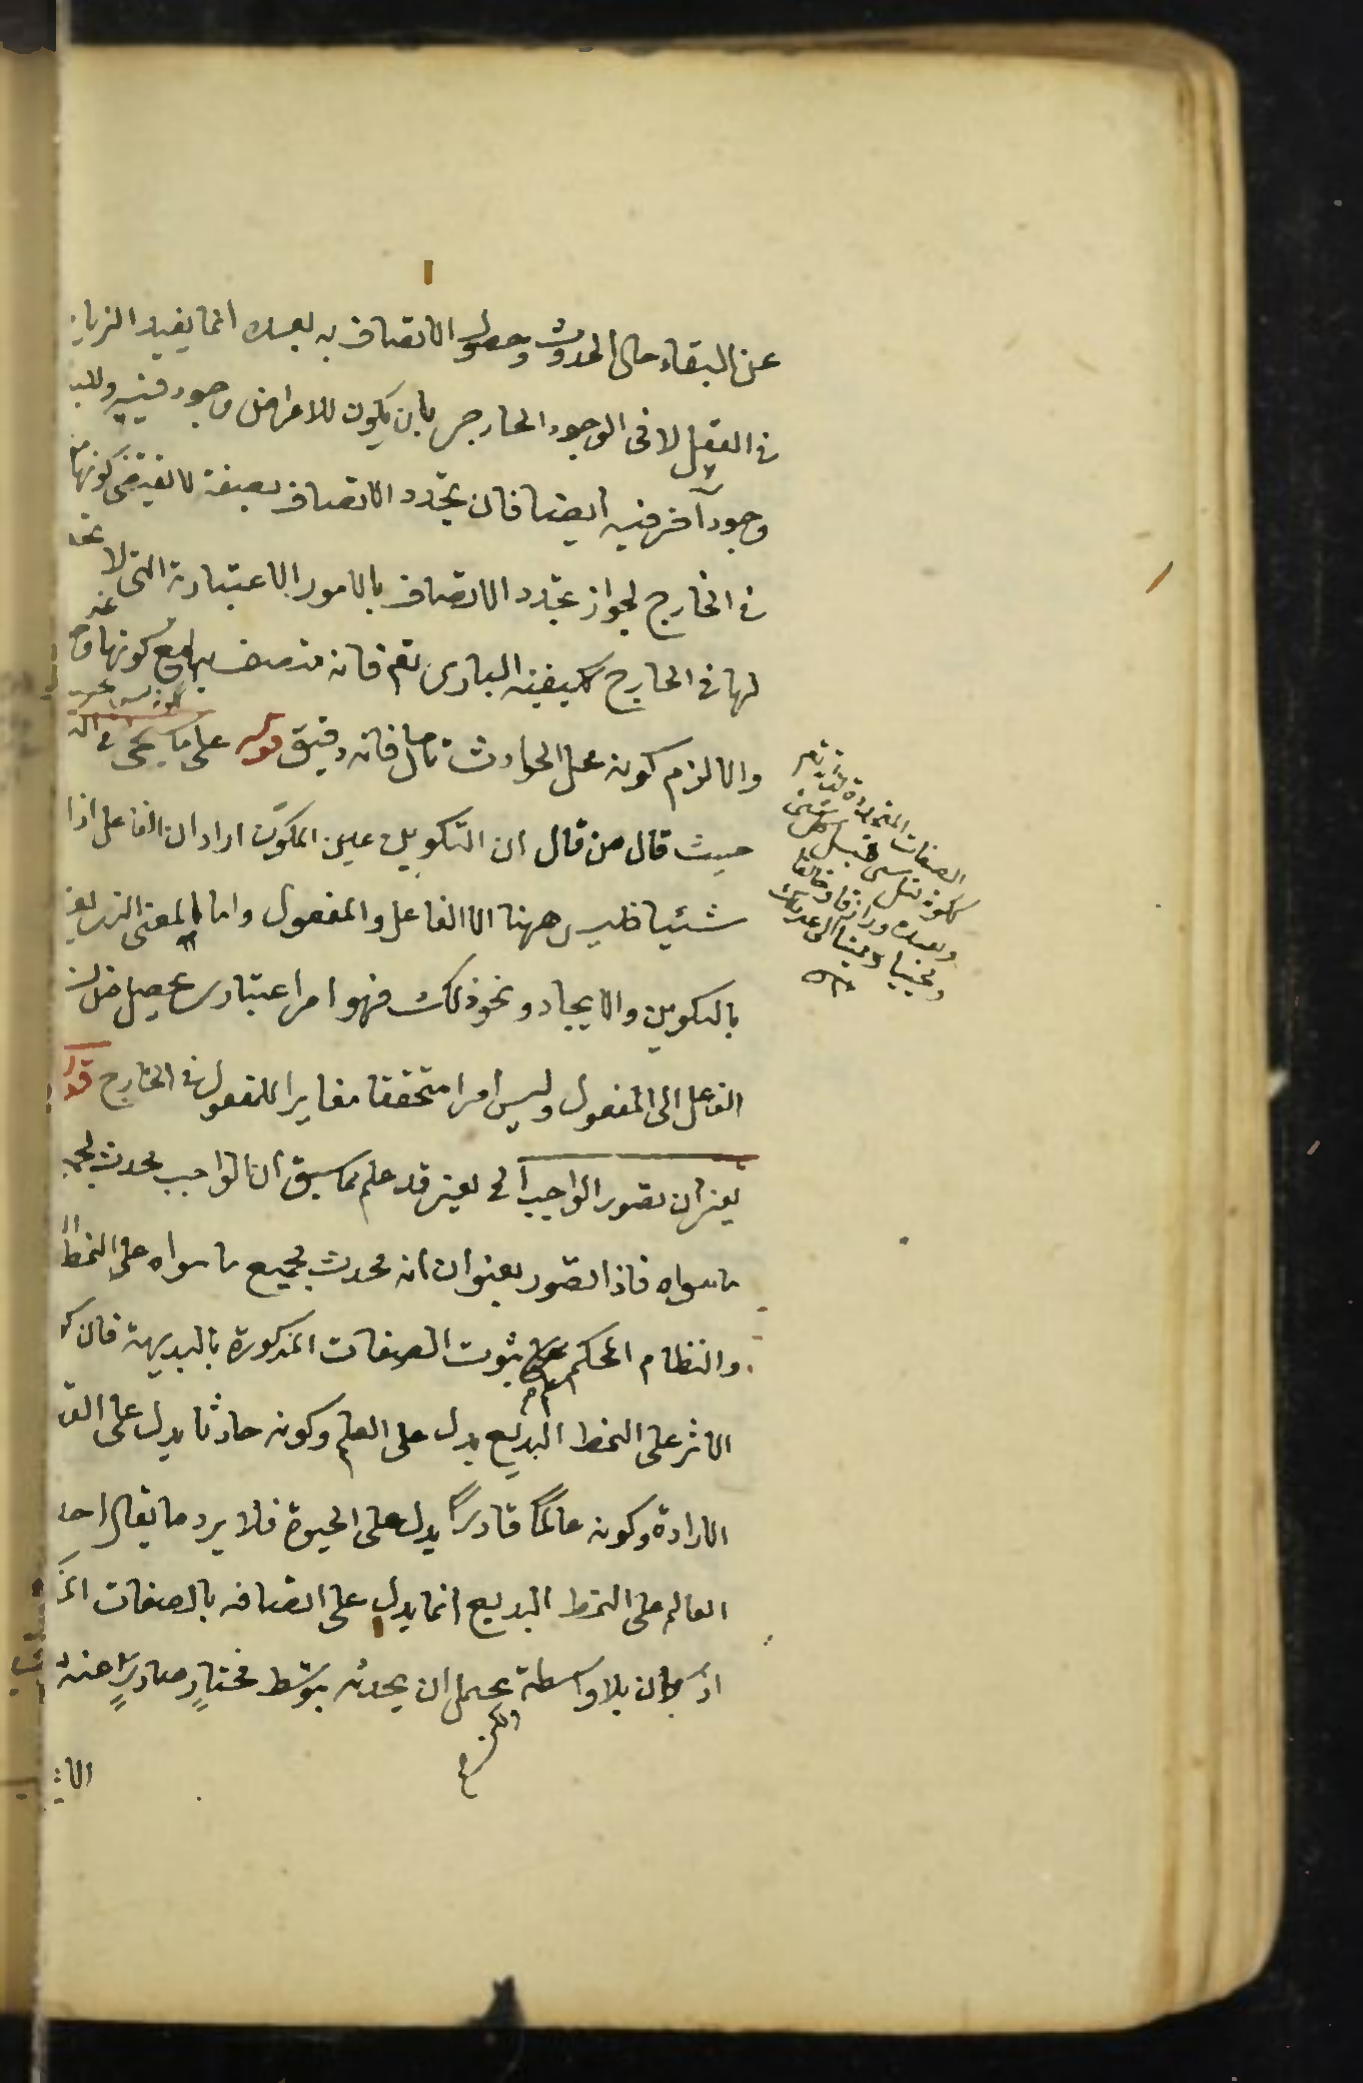 عن البقاء حال الحدوث وحصول الاتصاف به بعده انما يفيد الزيا
في العقل لا في الوجود الخارجي بان يكون للاعراض وجود فيه وللبـ
وجود آخر فيه ايضا فان تجدد الاتصاف بصفة لا يقتضي كونها
في الخارج لجواز تجدد الاتصاف بالامور الاعتبارية التي لا
لها في الخارج كمعية الباري تعم فانه متصف بها مع كونها
والا لزم كونه محل الحوادث تامل فانه دقيق قوله على ما سيجئ في
حيث قال من قال ان التكوين عين المكوّن اراد ان الفاعل اذا
شيئا فليس ههنا الا الفاعل والمفعول واما المعنى الذي يعبر
بالتكوين والايجاد ونحو ذلك فهو امر اعتباري يحصل من
الفاعل الى المفعول وليس امرا متحققا مغايرا للمفعول في الخارج قوله
يعني ان تصور الواجب الخ يعني قد علم مما سبق ان الواجب محدث لجميع
ما سواه فاذا تصور بعنوان انه محدث لجميع ما سواه على النمط
والنظام المحكم ثبوت الصفات المذكورة بالبديهة فان
الاثر على النمط البديع يدل على العلم وكونه حادثا يدل على
الارادة وكونه عالمًا قادرًا يدل على الحيوة فلا يرد ما يقال
العالم على النمط البديع انما يدل على اتصافه بالصفات
اذ كان بلا واسطة يحتمل ان يحدثه بتوسط مختارٍ صادرٍ عنه
الصفات
قبل كل شئ
وبعده ورازقا وخالقا
ومحييا ومميتا الى غير ذلك